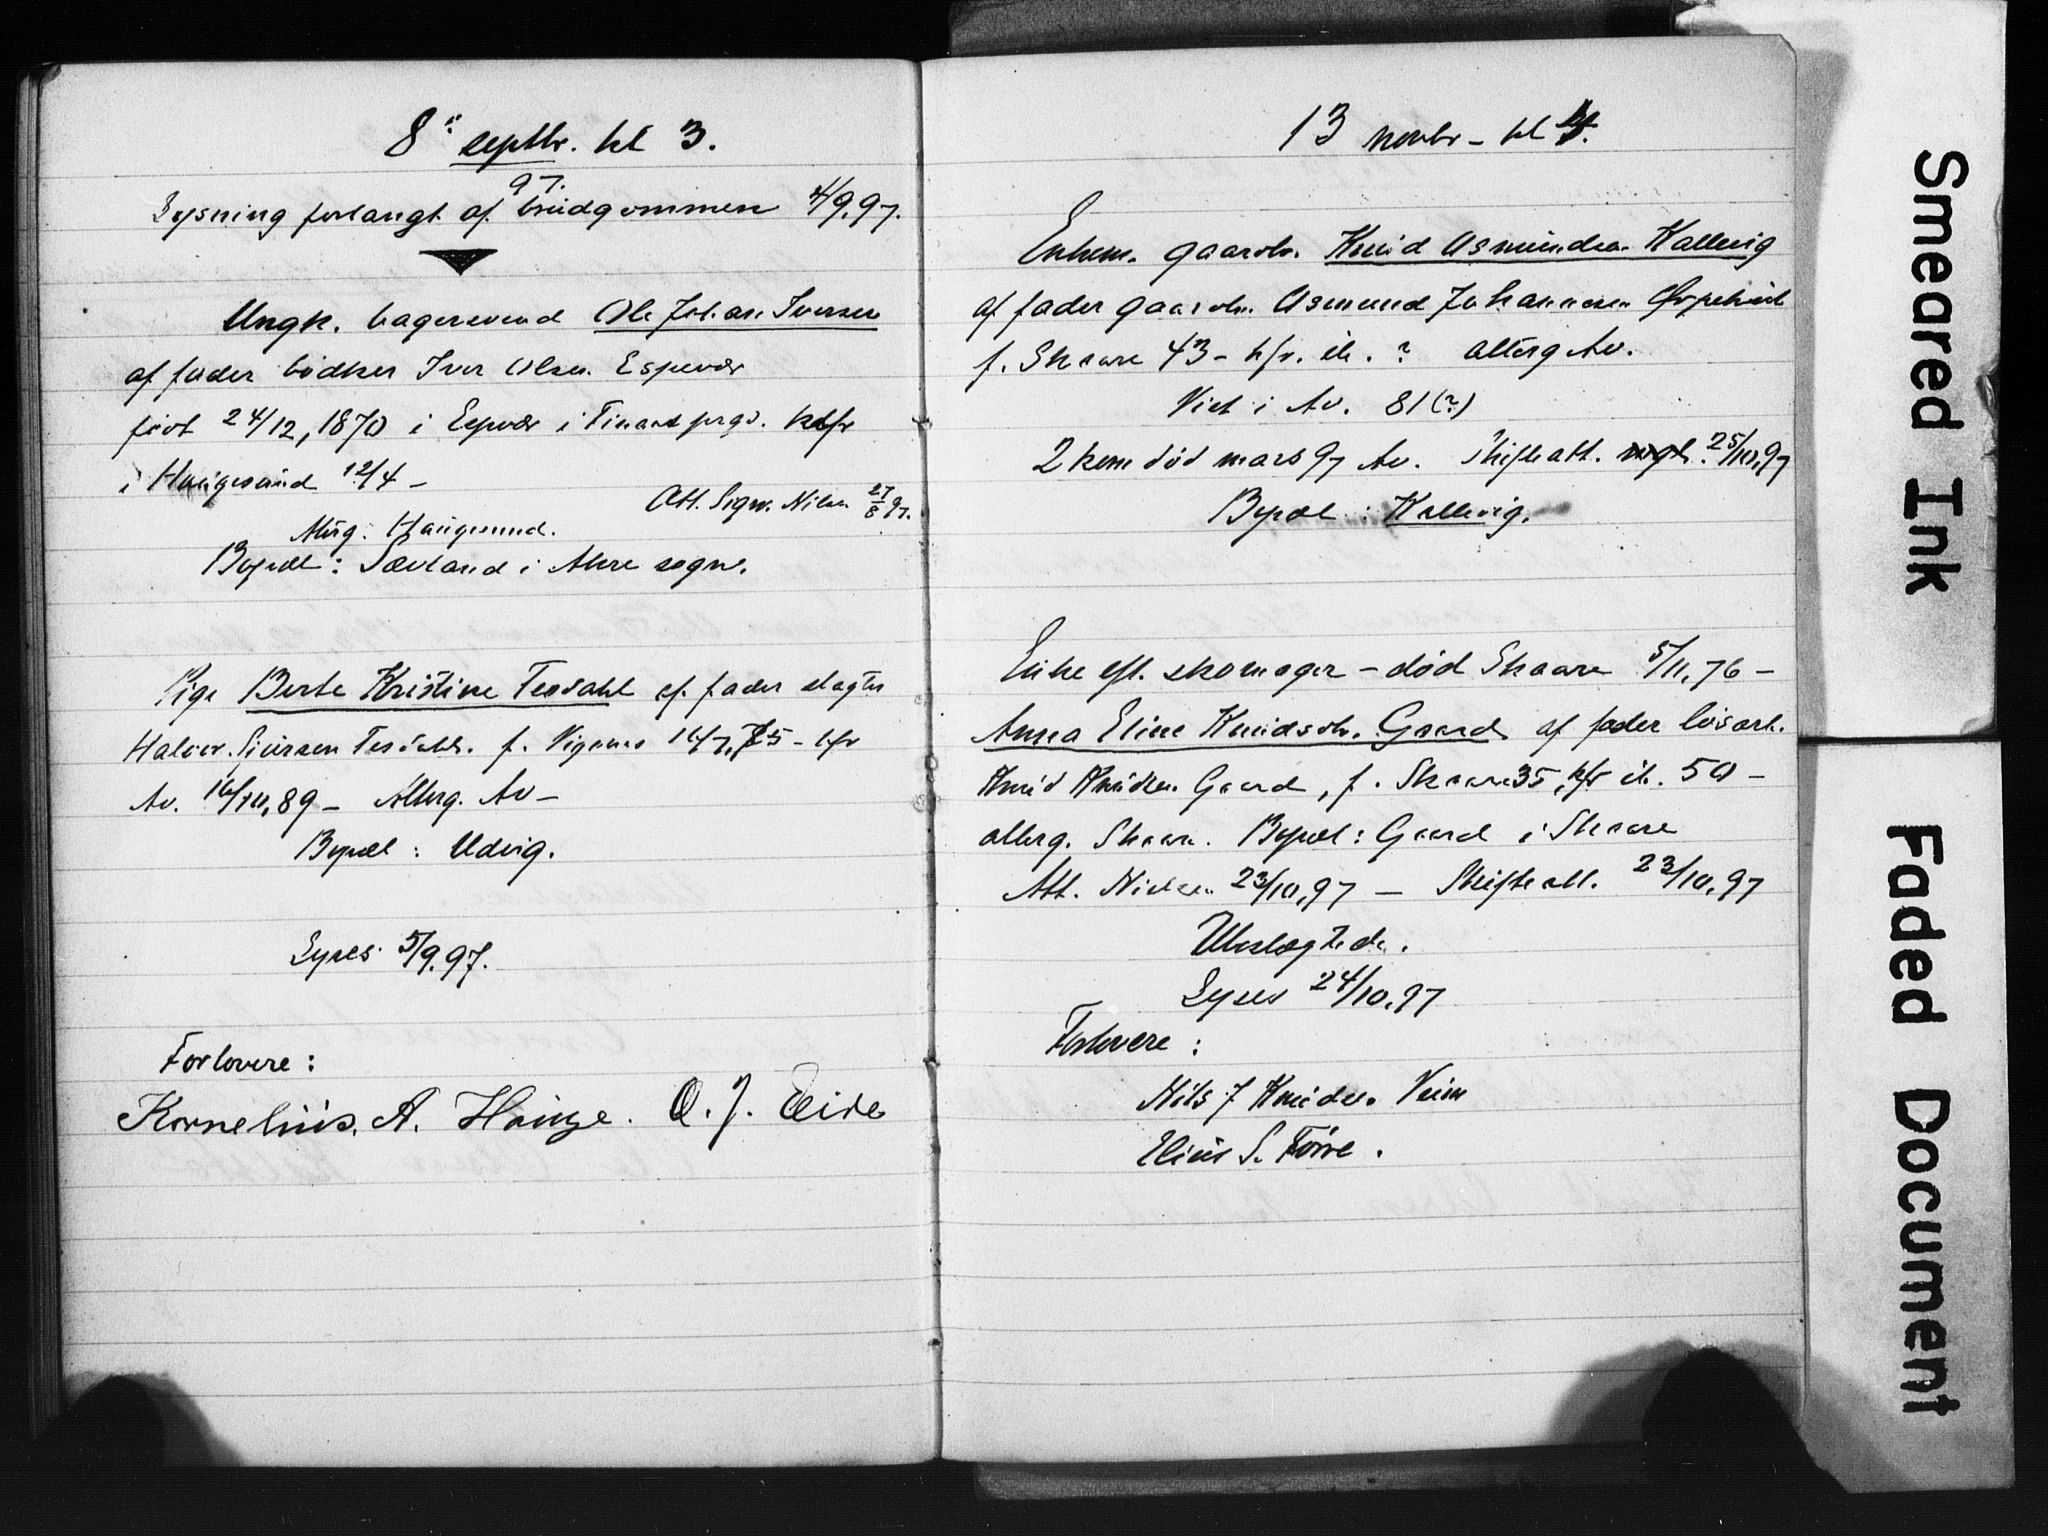 8de septbr. kl 3.
97.
Lysning forlangt af brudgommen 4/9.97.
Ungk. bagersvend Ole Johan Iversen
af fader bødker Iver Olsen Espevær
født 24/12, 1870 i Espevær i Finaas prgd. kfr
i Haugesund 12/4 –
Att. Sogn. Nilsen 27/8 97.
Alterg: Haugesund.
Bopæl: Sævland i Akre sogn.
Pige Berte Kristine Tesdahl af fader slagter
Halvor Sjursen Tesdahl. f. 16/7, 75 – kfr
Av. 16/10, 89 – Alterg. Av –
Bopæl: Udvig.
Lyses 5/9.97.
Forlovere:
Kornelius. A. Hauge. O. J. Eide
13 novbr – kl 4.
Enkem. gaardbr. Knud Asmundsen Kallevig
af fader gaardbr. Asmund Johannesen
f. Skaare 43 – kfr. ib. ? alterg Av.
Viet i Av. 81 (?)
2 kone død mars 97 Av. Skifteatt. 25/10, 97
Bopæl: Kallevig.
Enke eft. skomager – død Skaare 5/11, 76 –
Anna Eline Knudsdtr. Gaard af fader løsarb.
Knud Knudsen Gaard, f. Skaare 35, kfr ib. 50 –
alterg. Skaare. Bopæl: Gaard i Skaare
Att. Nielsen 23/10, 97 – Skifteatt. 23/10, 97
Ubeslægtede.
Lyses 24/10, 97
Forlovere:
Nils J Knudsen Veim
Elius S. Førre.
Smeared Ink
Faded Document